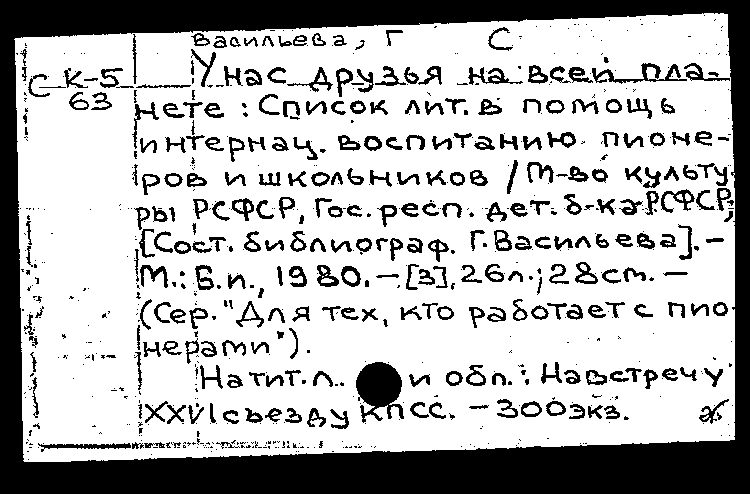 Васильева, Г С
С К-5 У нас друзья на всей пла-
63 нете : Список лит. в помощь
интернац. воспитанию пионе-
ров и школьников / М-во культу
ры РСФСР, Гос. респ. дет. б-ка РСФСР;
[Сост. библиограф. Г. Васильева]. –
М.: Б.и., 1980. – [3], 26л.; 28см. –
(Сер. "Для тех, кто работает с пио
нерами").
На тит. л. и обл.: Навстречу
XXVI съезду КПСС. – 300экз.